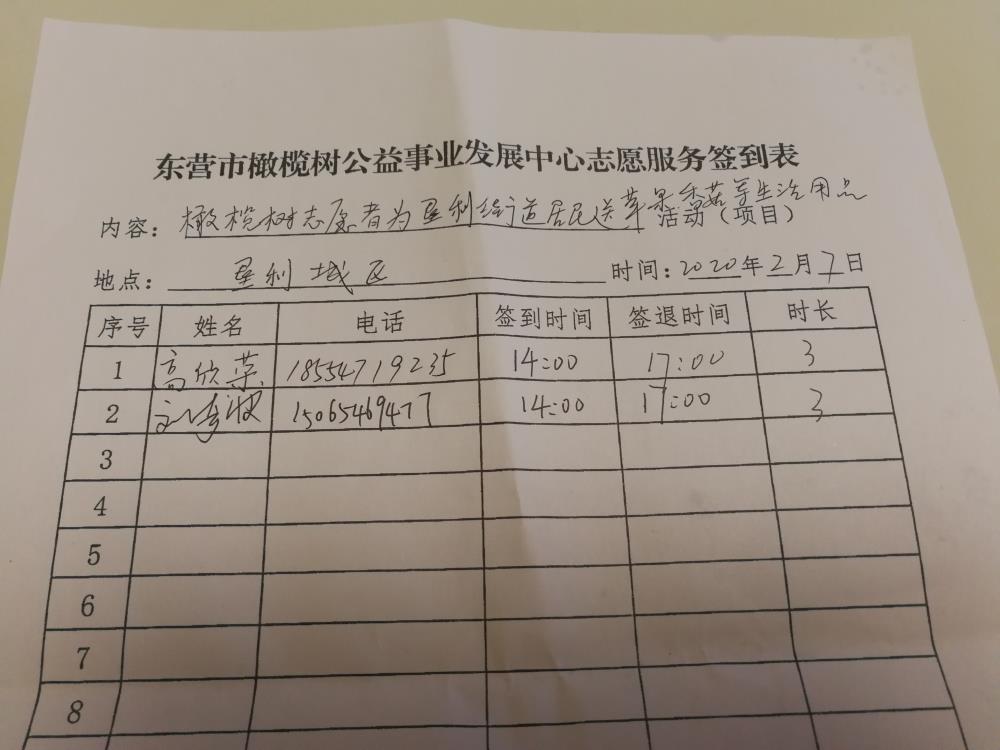 东营市橄榄树公益事业发展中心志愿服务签到表
内容：橄榄树志愿者为垦利街道居民送苹果香菇等生活用品活动（项目）
地点：垦利城区 时间：2020年2月7日
序号 姓名 电话 签到时间 签退时间 时长
1 高欣荣 18554719235 14:00 17:00 3
2 刘 15065469477 14:00 17:00 3
3
4
5
6
7
8